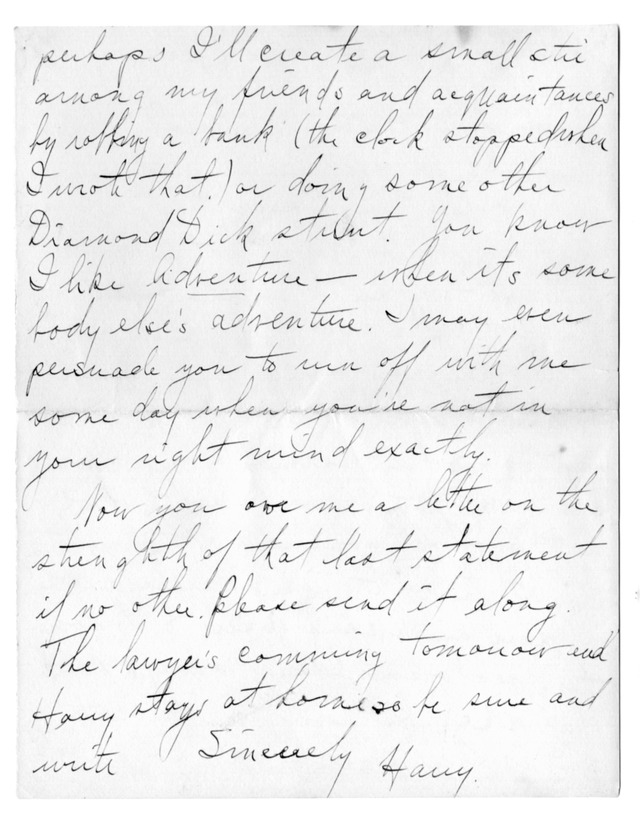 perhaps I'll create a small stir
among my friends and acquaintances
by robbing a bank (the clock stopped when
I wrote that.) or doing some other
Diamond Dick stunt. You know
I like Adventure — when it's some
body else's adventure. I may even
persuade you to run off with me
some day when you're not in
your right mind exactly.
Now you owe me a letter on the
strenghth of that last statement
if no other. Please send it along.
The lawyer's comming tomorrow and
Harry stays at home so be sure and
write Sincerely Harry.